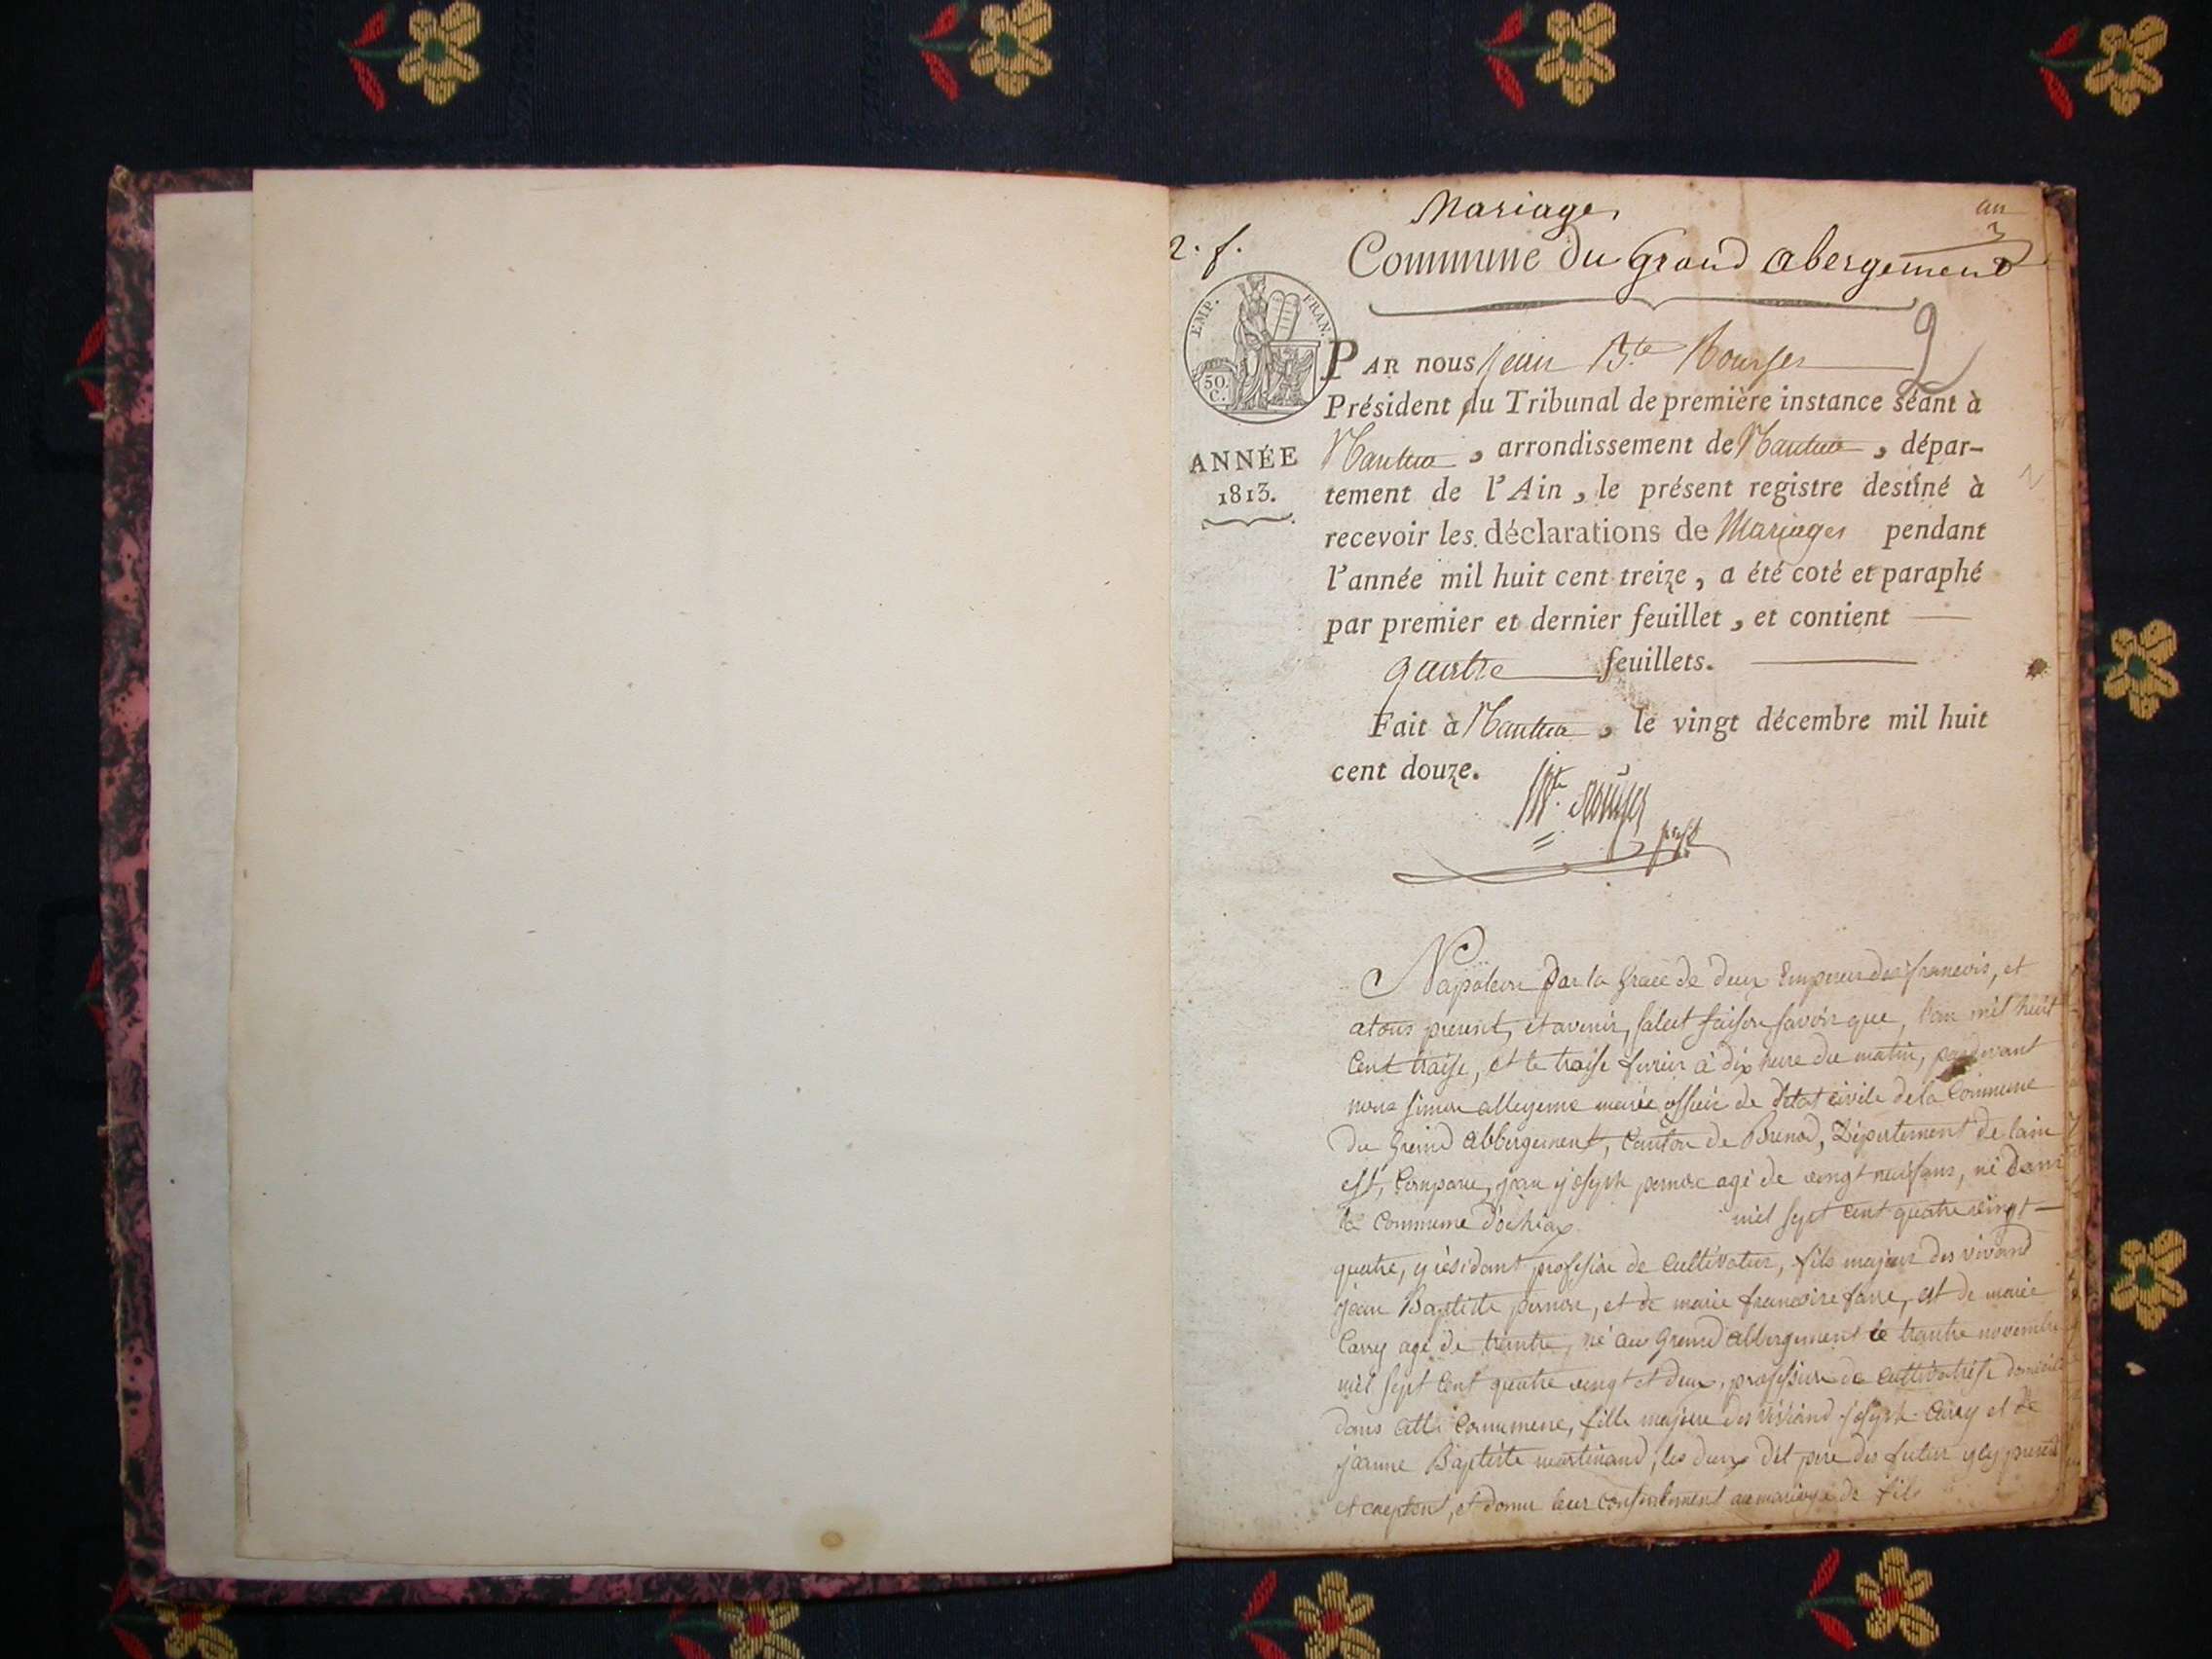 Mariages
an
2. f.
Commune du Grand abergement
EMP. FRAN.
50.
C.
ANNÉE
1813.
2
PAR nous Jean Bte Rouyer
Président du Tribunal de première instance séant à
Nantua, arrondissement de Nantua, dépar-
tement de l'Ain, le présent registre destiné à
recevoir les déclarations de Mariages pendant
l'année mil huit cent treize, a été coté et paraphé
par premier et dernier feuillet, et contient
quatre feuillets.
Fait à Nantua, le vingt décembre mil huit
cent douze.
Napoleon par la Grace de deux Empereur des francois, et
atous present, et avenir, salut faison savoir que, lan mil huit
Cent traise, et le traise fevrier a dix heure du matin, pardevant
nous simon alleyeme maire officier de l'etat civile de la Commune
du Grand abbergement, Canton de Brenod, Département de lain
est, Comparu, jean joseph pernox agé de vingt neufans, né dans
la Commune d'ochiax mil sept cent quatre vingt
quatre, y résidant profession de cultivateur, fils majeur des vivand
jean Baptiste pernox, et de marie francoise fave, est de marie
Carry agé de trentre, né au Grand abbergement le trantre novembre
mil sept Cent quatre vingt et deux, profession de cultivatrise domicilié
dans cette Commune, fille majeure des vivand joseph Carry et de
jeanne Baptiste martinand, les deux dit pere des futur y ley present
et cnepton, et donne leur consentement au mariage de fils